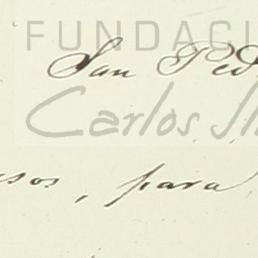 FUNDACI
San Ped
Carlos Sl
sos, para